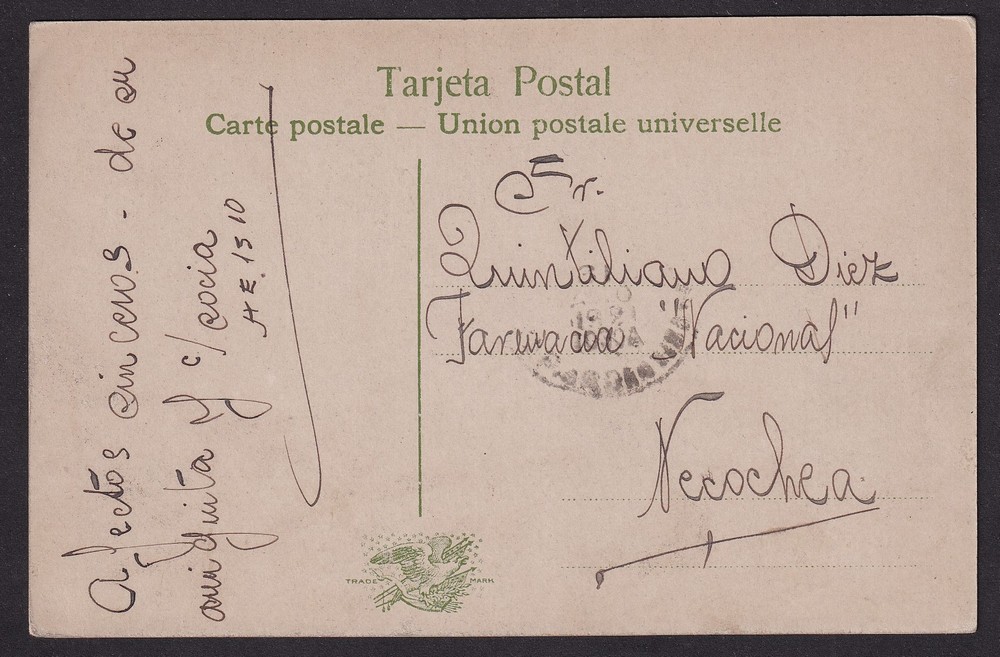 Tarjeta Postal
Carte postale — Union postale universelle
Afectos sinceros - de su
amiguita y c/socia
Sr.
Quintiliano Diez
Farmacia "Nacional"
Necochea
TRADE MARK